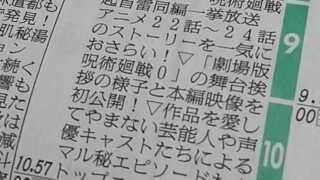 雷同編一挙放送
アニメ22話～24話
のストーリーを一気に
おさらい！▽「劇場版
呪術廻戦0」の舞台挨
拶の様子と本編映像を
初公開！▽作品を愛し
てやまない芸能人や声
優キャストたちによる
マル秘エピソードも
トップ
肌秘湯
ョン
続く
響も
見た
減
10.57
9
9.
00
10